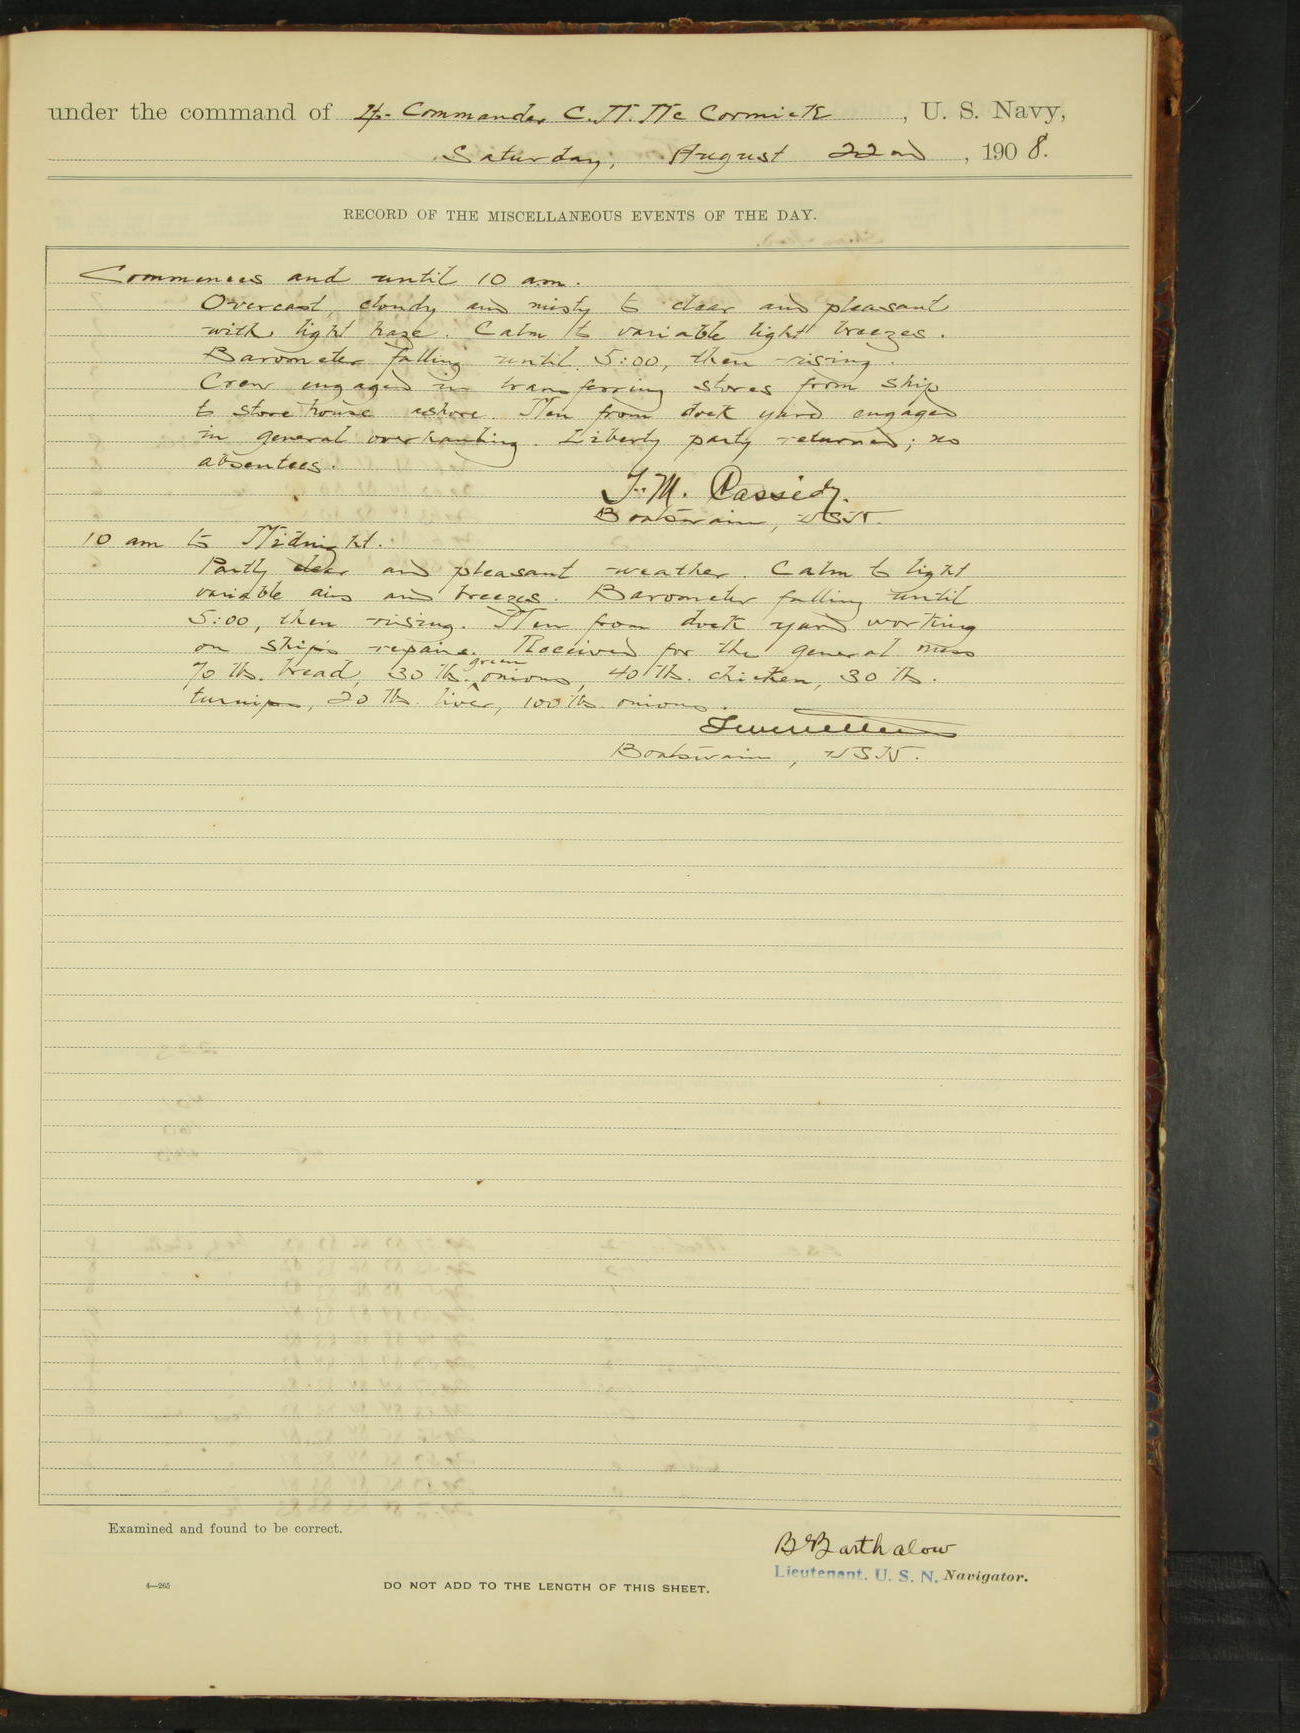 under the command of Lt. Commander C. M. McCormick, U. S. Navy,
Saturday, August 22nd, 1908.
RECORD OF THE MISCELLANEOUS EVENTS OF THE DAY.
Commences and until 10 am.
Overcast, cloudy and misty to clear and pleasant
with light haze. Calm to variable light breezes.
Barometer falling until 5:00, then rising.
Crew engaged in transferring stores from ship
to store house ashore. Men from dock yard engaged
in general overhauling. Liberty party returned; no
absentees.
J. M. Cassidy.
Boatswain, USN.
10 am to Midnight.
Partly clear and pleasant weather. Calm to light
variable airs and breezes. Barometer falling until
5:00, then rising. Men from dock yard working
on ship's repairs. Received for the general mess
70 lb. bread, 30 lb. green onions, 40 lb. chicken, 30 lb.
turnips, 20 lb. liver, 100 lb. onions.
Boatswain, USN.
Examined and found to be correct.
B Barthalow
Lieutenant. U. S. N. Navigator.
4—265
DO NOT ADD TO THE LENGTH OF THIS SHEET.